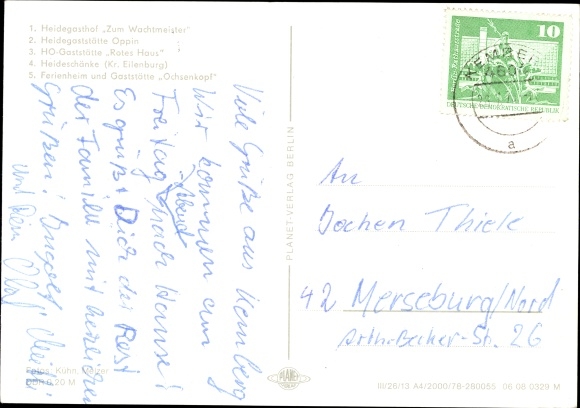 1. Heidegasthof „Zum Wachtmeister"
2. Heidegaststätte Oppin
3. HO-Gaststätte „Rotes Haus"
4. Heideschänke (Kr. Eilenburg)
5. Ferienheim und Gaststätte „Ochsenkopf"
Viele Grüße aus Kemberg
Wir kommen am
Freitag -abend nach Hause!
Es grüßt Dich der Rest
der Familie mit herzlichen
Grüßen!
und Dein Olaf
Fotos: Kühn, Melzer
DDR 0,20 M
PLANET-VERLAG BERLIN
PLANET
10
DEUTSCHE DEMOKRATISCHE REPUBLIK
KEMBERG
a
An
Jochen Thiele
42 Merseburg/Nord
Arth.-Becker-Str. 26
III/26/13 A4/2000/78-280055 06 08 0329 M